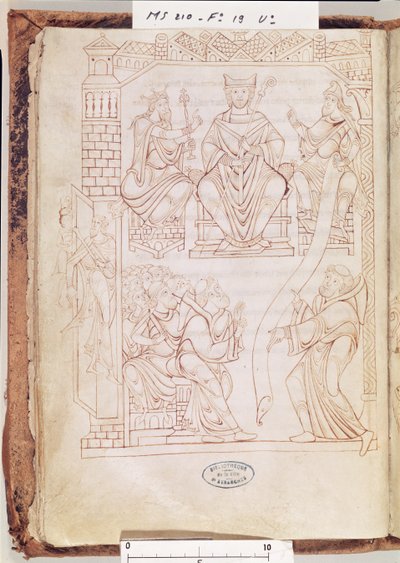 MS 210 - Fº 19 Vº
BIBLIOTHEQUE
DE LA VILLE
D'AVRANCHES
0 10
5